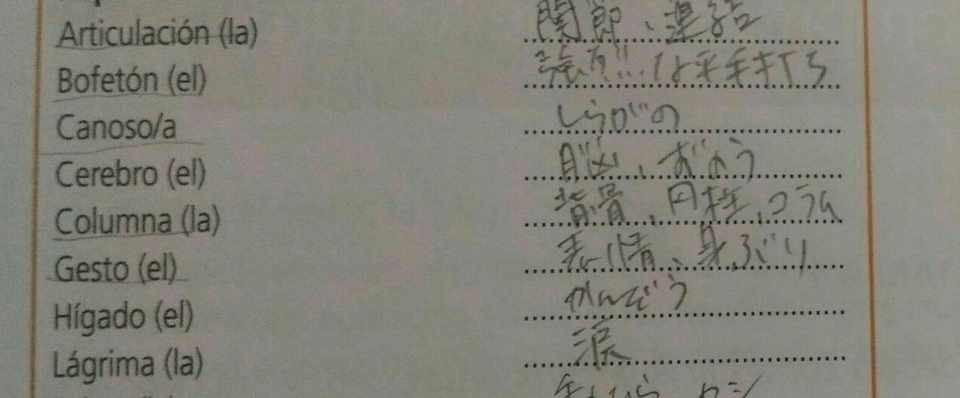 Articulación (la) 関節、連結
Bofetón (el) 強烈な平手打ち
Canoso/a しらがの
Cerebro (el) 脳、ずのう
Columna (la) 背骨、円柱、コラム
Gesto (el) 表情、身ぶり
Hígado (el) かんぞう
Lágrima (la) 涙